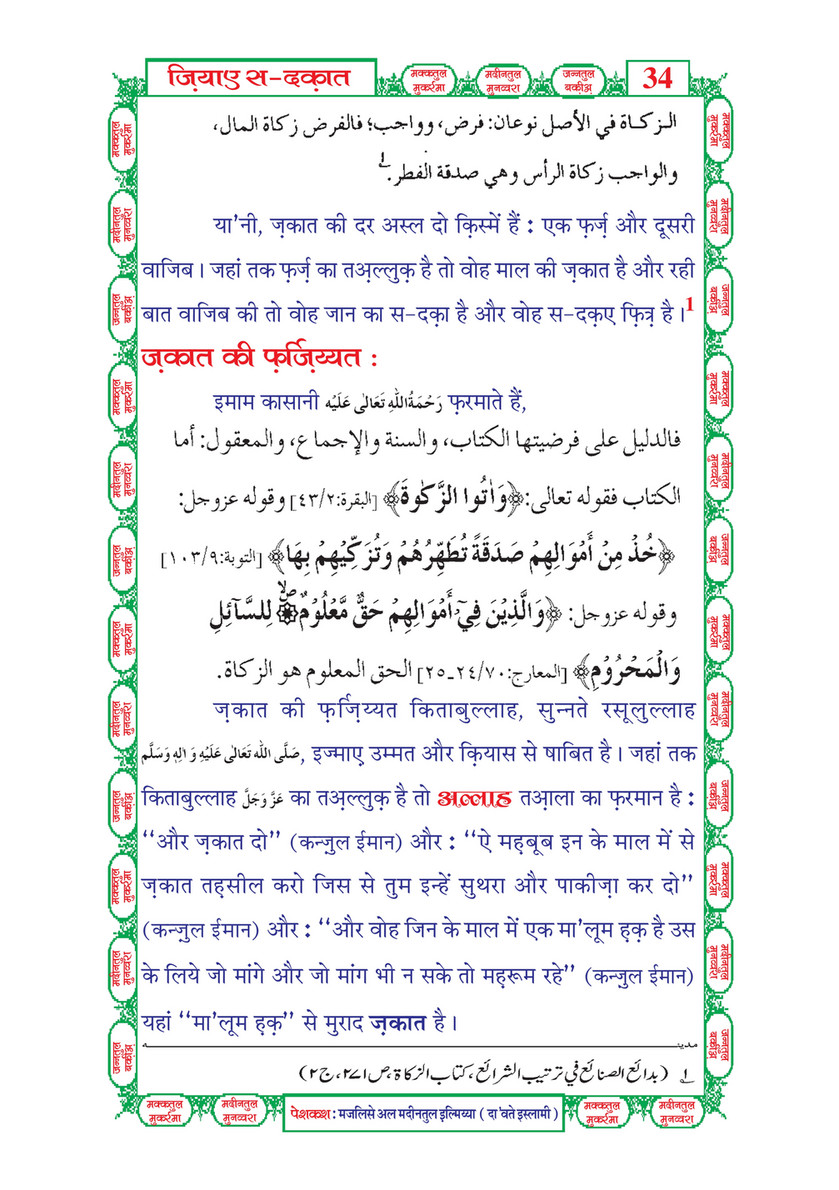 ज़ियाए स-दक़ात
मक्कतुल मुकर्रमा
मदीनतुल मुनव्वरा
जन्नतुल बक़ीअ़
34
الـزكـاة في الأصل نوعان: فرض، وواجب؛ فالفرض زكاة المال،
والواجب زكاة الرأس وهي صدقة الفطر.؂١
या'नी, ज़कात की दर अस्ल दो क़िस्में हैं : एक फ़र्ज़ और दूसरी
वाजिब । जहां तक फ़र्ज़ का तअ़ल्लुक़ है तो वोह माल की ज़कात है और रही
बात वाजिब की तो वोह जान का स-दक़ा है और वोह स-दक़ए फ़ित्र है ।1
ज़कात की फ़र्ज़िय्यत :
इमाम कासानी رَحْمَةُاللّٰهِ تَعَالٰى عَلَيْه फ़रमाते हैं,
فالدليل على فرضيتها الكتاب، والسنة والإجماع، والمعقول: أما
الكتاب فقوله تعالى: ﴿وَاٰتُوا الزَّكٰوةَ﴾ [البقرة:٤٣/٢] وقوله عزوجل:
﴿خُذْ مِنْ أَمْوَالِهِمْ صَدَقَةً تُطَهِّرُهُمْ وَتُزَكِّيْهِمْ بِهَا﴾ [التوبة:١٠٣/٩]
وقوله عزوجل: ﴿وَالَّذِيْنَ فِيْٓ أَمْوَالِهِمْ حَقٌّ مَّعْلُوْمٌ لِلسَّآئِلِ
وَالْمَحْرُوْمِ﴾ [المعارج:٢٤/٧٠ـ٢٥] الحق المعلوم هو الزكاة.
ज़कात की फ़र्ज़िय्यत किताबुल्लाह, सुन्नते रसूलुल्लाह
صَلَّى اللّٰه تَعَالٰى عَلَيْهِ وَ اٰلِهٖ وَسَلَّم, इज्माए उम्मत और क़ियास से षाबित है । जहां तक
किताबुल्लाह عَزَّ وَجَلَّ का तअ़ल्लुक़ है तो अल्लाह तआ़ला का फ़रमान है :
“और ज़कात दो” (कन्ज़ुल ईमान) और : “ऐ मह़बूब इन के माल में से
ज़कात तह़सील करो जिस से तुम इन्हें सुथरा और पाकीज़ा कर दो”
(कन्ज़ुल ईमान) और : “और वोह जिन के माल में एक मा'लूम ह़क़ है उस
के लिये जो मांगे और जो मांग भी न सके तो मह़रूम रहे” (कन्ज़ुल ईमान)
यहां “मा'लूम ह़क़” से मुराद ज़कात है ।
مدينه
؂١ (بدائع الصنائع في ترتيب الشرائع، كتاب الزكاة،ص٢٧١،ج٢)
मक्कतुल मुकर्रमा
मदीनतुल मुनव्वरा
पेशकश : मजलिसे अल मदीनतुल इल्मिय्या ( दा'वते इस्लामी )
मक्कतुल मुकर्रमा
मदीनतुल मुनव्वरा